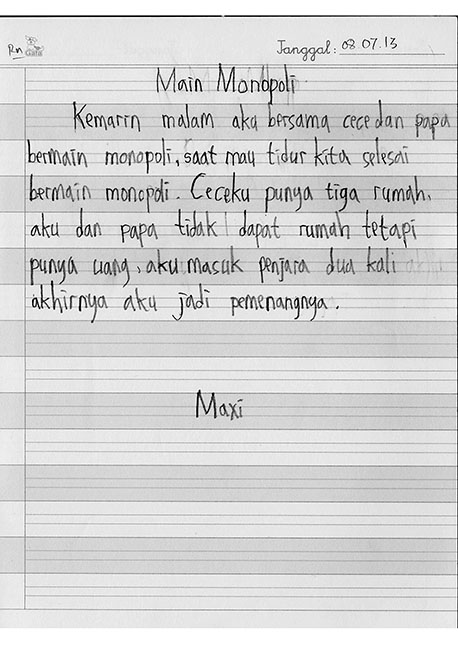 Rn
Tanggal: 08 07.13
Main Monopoli
Kemarin malam aku bersama cece dan papa
bermain monopoli, saat mau tidur kita selesai
bermain monopoli. Ceceku punya tiga rumah,
aku dan papa tidak dapat rumah tetapi
punya uang, aku masuk penjara dua kali
akhirnya aku jadi pemenangnya.
Maxi